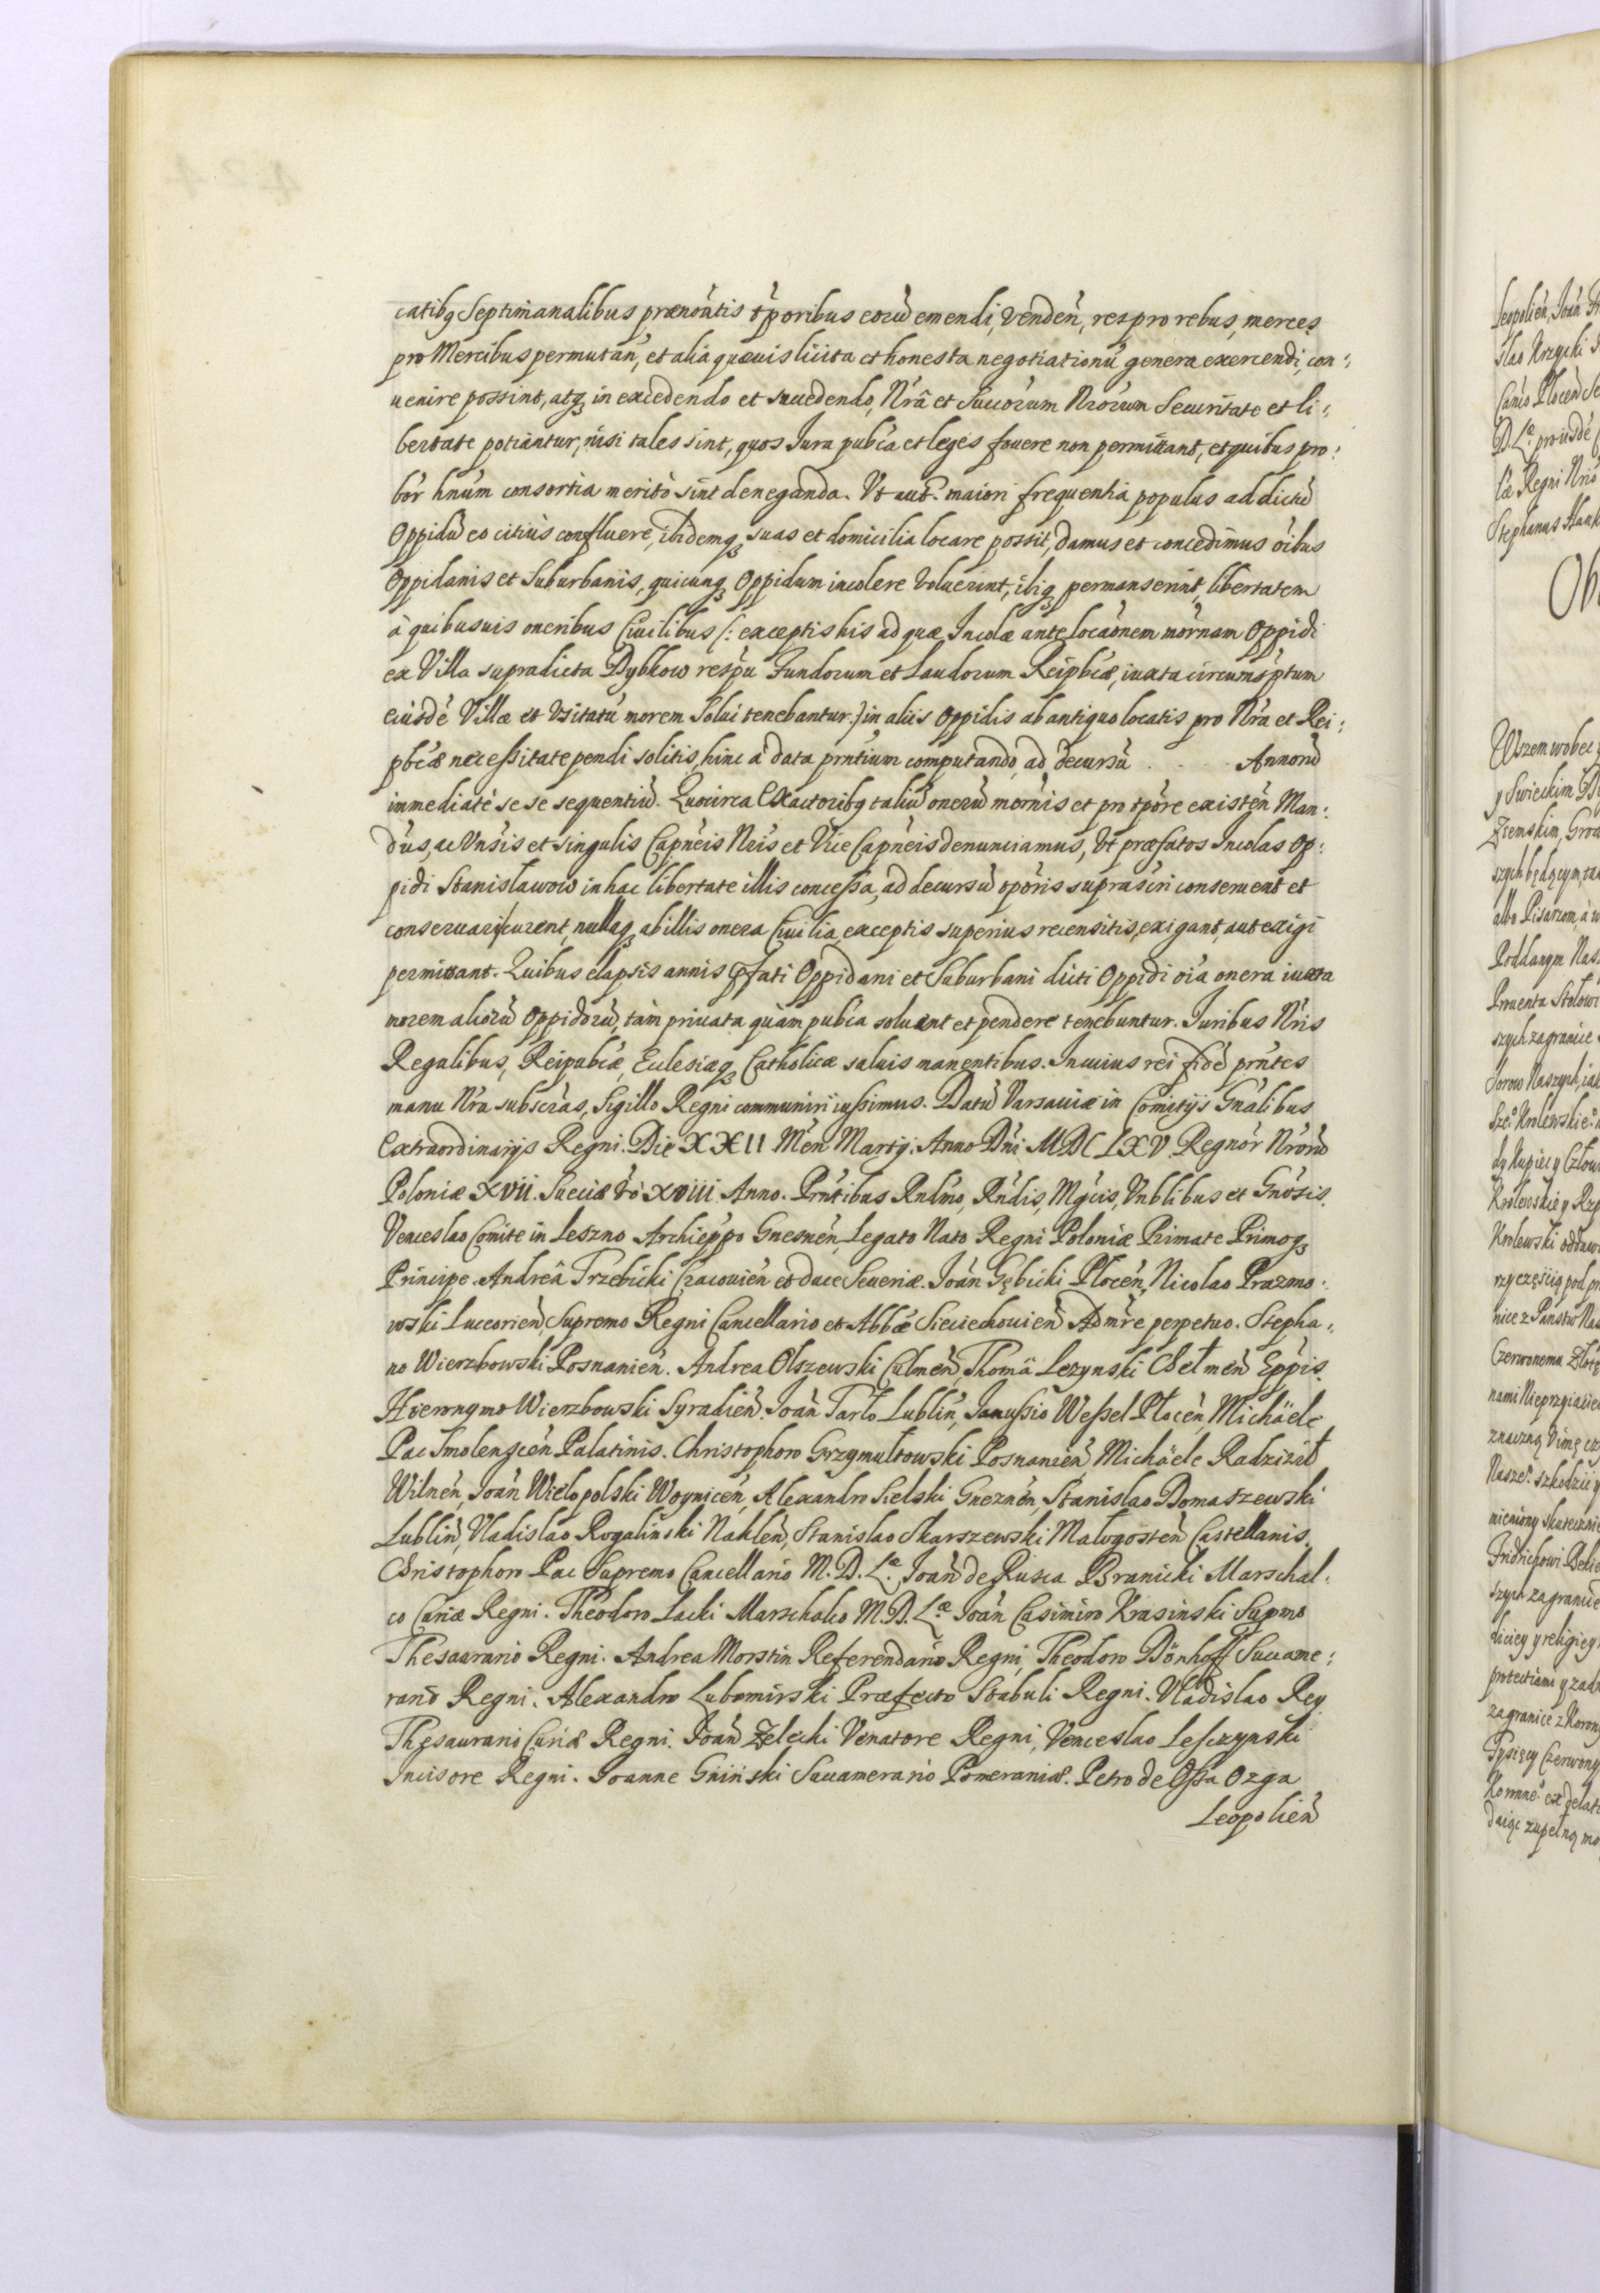 catibq Septimanalibus prænoūtis t̄poribus eorū emendi, venden̄, res pro rebus, merces
pro Mercibus permutan̄, et alia quævis licita et honesta negotiationū genera exercendi, con:
uenire possint, atq in excedendo et succedendo, Nrâ et Succorum Nrorum Securitate et li:
bertate potiantur, nisi tales sint, quos Jura pubca et leges fouere non permittant, et quibus pro:
bor hnum consortia meritò sint deneganda. Vt aut. maiori frequentia populus ad dictū
Oppidū eo citius confluere, ibidemq suas et domicilia locare possit, damus et concedimus oībus
Oppidanis et Suburbaniis, quicunq Oppidum incolere voluerint, ibiq permanserint, libertatem
à quibusuis oneribus Ciuilibus (: exceptis his ad quæ Incolæ ante locaōnem mōrnam Oppidi
ex Villa supradicta Dybkow respu Fundorum et Laudorum Reipbcæ, iuxta circumsptum
eiusdē Villæ et Vsitatū morem Solui tenebantur :) in aliis Oppidis ab antiquo locatis pro Nrâ et Rei:
pbcæ necessitate pendi solitis, hinc a data prntium computando, ad decursū . . . . Annorū
immediatè se se sequentiū. Quocirca Exactoribq taliū onerū mornis et pro tpore existen̄ Man:
dūs, ac Vnsis et singulis Capneis Nris et Vice Capneis denunciamus, Vt præfatos Incolas Op:
pidi Stanisławow in hac libertate illis concessa, ad decursū tporis suprascri conseruent et
conseruari curent, nullaq ab illis onera Ciuilia, exceptis superius recensitis, exigant, aut exigi
permittant. Quibus elapsis annis pfati Oppidani et Suburbani dicti Oppidi oīa onera iuxta
morem aliorū Oppidorū, tàm priuata quàm pubca soluent et pendere tenebuntur. Iuribus Nris
Regalibus, Reipubcæ, Ecclesiæq Catholicæ saluis manentibus. In cuius rei fidē prntes
manu Nra subscras, Sigillo Regni communiri iussimus. Datū Varsauiæ in Comitijs Gnalibus
Extraordinarijs Regni. Die XXII Men̄ Martij. Anno Dni MDCLXV. Regnor Nrorū
Poloniæ XVII. Sueciæ vò XVIII Anno. Prntibus Rndmo, Rndis, Mgcis, Vnblibus et Gnosis.
Venceslao Comite in Leszno Archieppo Gnesnen̄, Legato Nato Regni Poloniæ Primate Primoq
Principe. Andreâ Trzebicki Cracouien̄ et duce Seueriæ. Joān Gębicki Plocen̄, Nicolao Prazmo:
wski Luceorien̄, Supremo Regni Cancellario et Abbæ Sieciechouien̄ Admre perpetuo. Stepha:
no Wierzbowski Posnanien̄. Andrea Olszewski Culmen̄, Thomä Lezynski Chełmen̄ Eppis.
Hieronymo Wierzbowski Syradien̄. Joān Tarło Lublin̄, Janussio Wessel Płocen̄, Michäele
Pac Smolenscen̄ Palatinis. Christophoro Grzymułtowski Posnanien̄ Michäele Radziził
Wilnen̄, Joān Wielopolski Woynicen̄, Alexandro Sielski Gneznen̄, Stanislao Domaszewski
Lublin̄, Vladislao Rogaliński Naklen̄, Stanislao Skarszewski Małogosten̄ Castellanis.
Christophoro Pac Supremo Cancellario M. D. Læ. Joān de Rusca Branicki Marschal:
co Curiæ Regni. Theodoro Lacki Marschalco M. D. Læ Joān Casimiro Krasinski Supmo
Thesaurario Regni. Andrea Morstin Referendario Regni, Theodoro Dönhoff Succame:
rario Regni. Alexandro Lubomirski Præfecto Stabuli Regni. Vladislao Rey
Thesaurario Curiæ Regni. Joān Zelecki Venatore Regni, Venceslao Lesczynski
Incisore Regni. Joanne Gniński Succamerario Pomeraniæ. Petro de Ossa Ozga
Leopolien̄